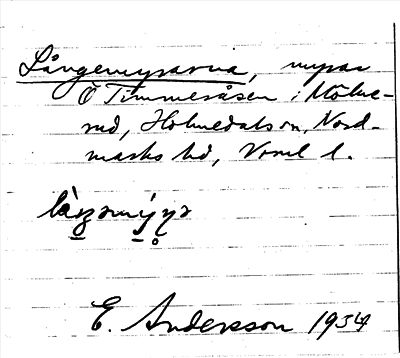 Långemyrarna, myrar
Ö Timmeråsen i Mölne-
rud, Holmedals sn, Nord-
marks hd, Vrml l.
E. Andersson 1934